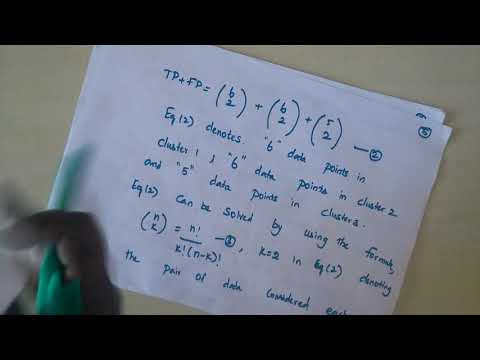 TP+FP = (6 2) + (6 2) + (5 2) — ②
Eq(2) denotes "6" data points in
cluster 1 ; "6" data points in cluster 2
and "5" data points in cluster 3.
Eq(2) can be solved by using the formula,
(n k) = n! / k!(n-k)! — ③, k=2 in Eq(2) denoting
the pair of data considered each
⑤